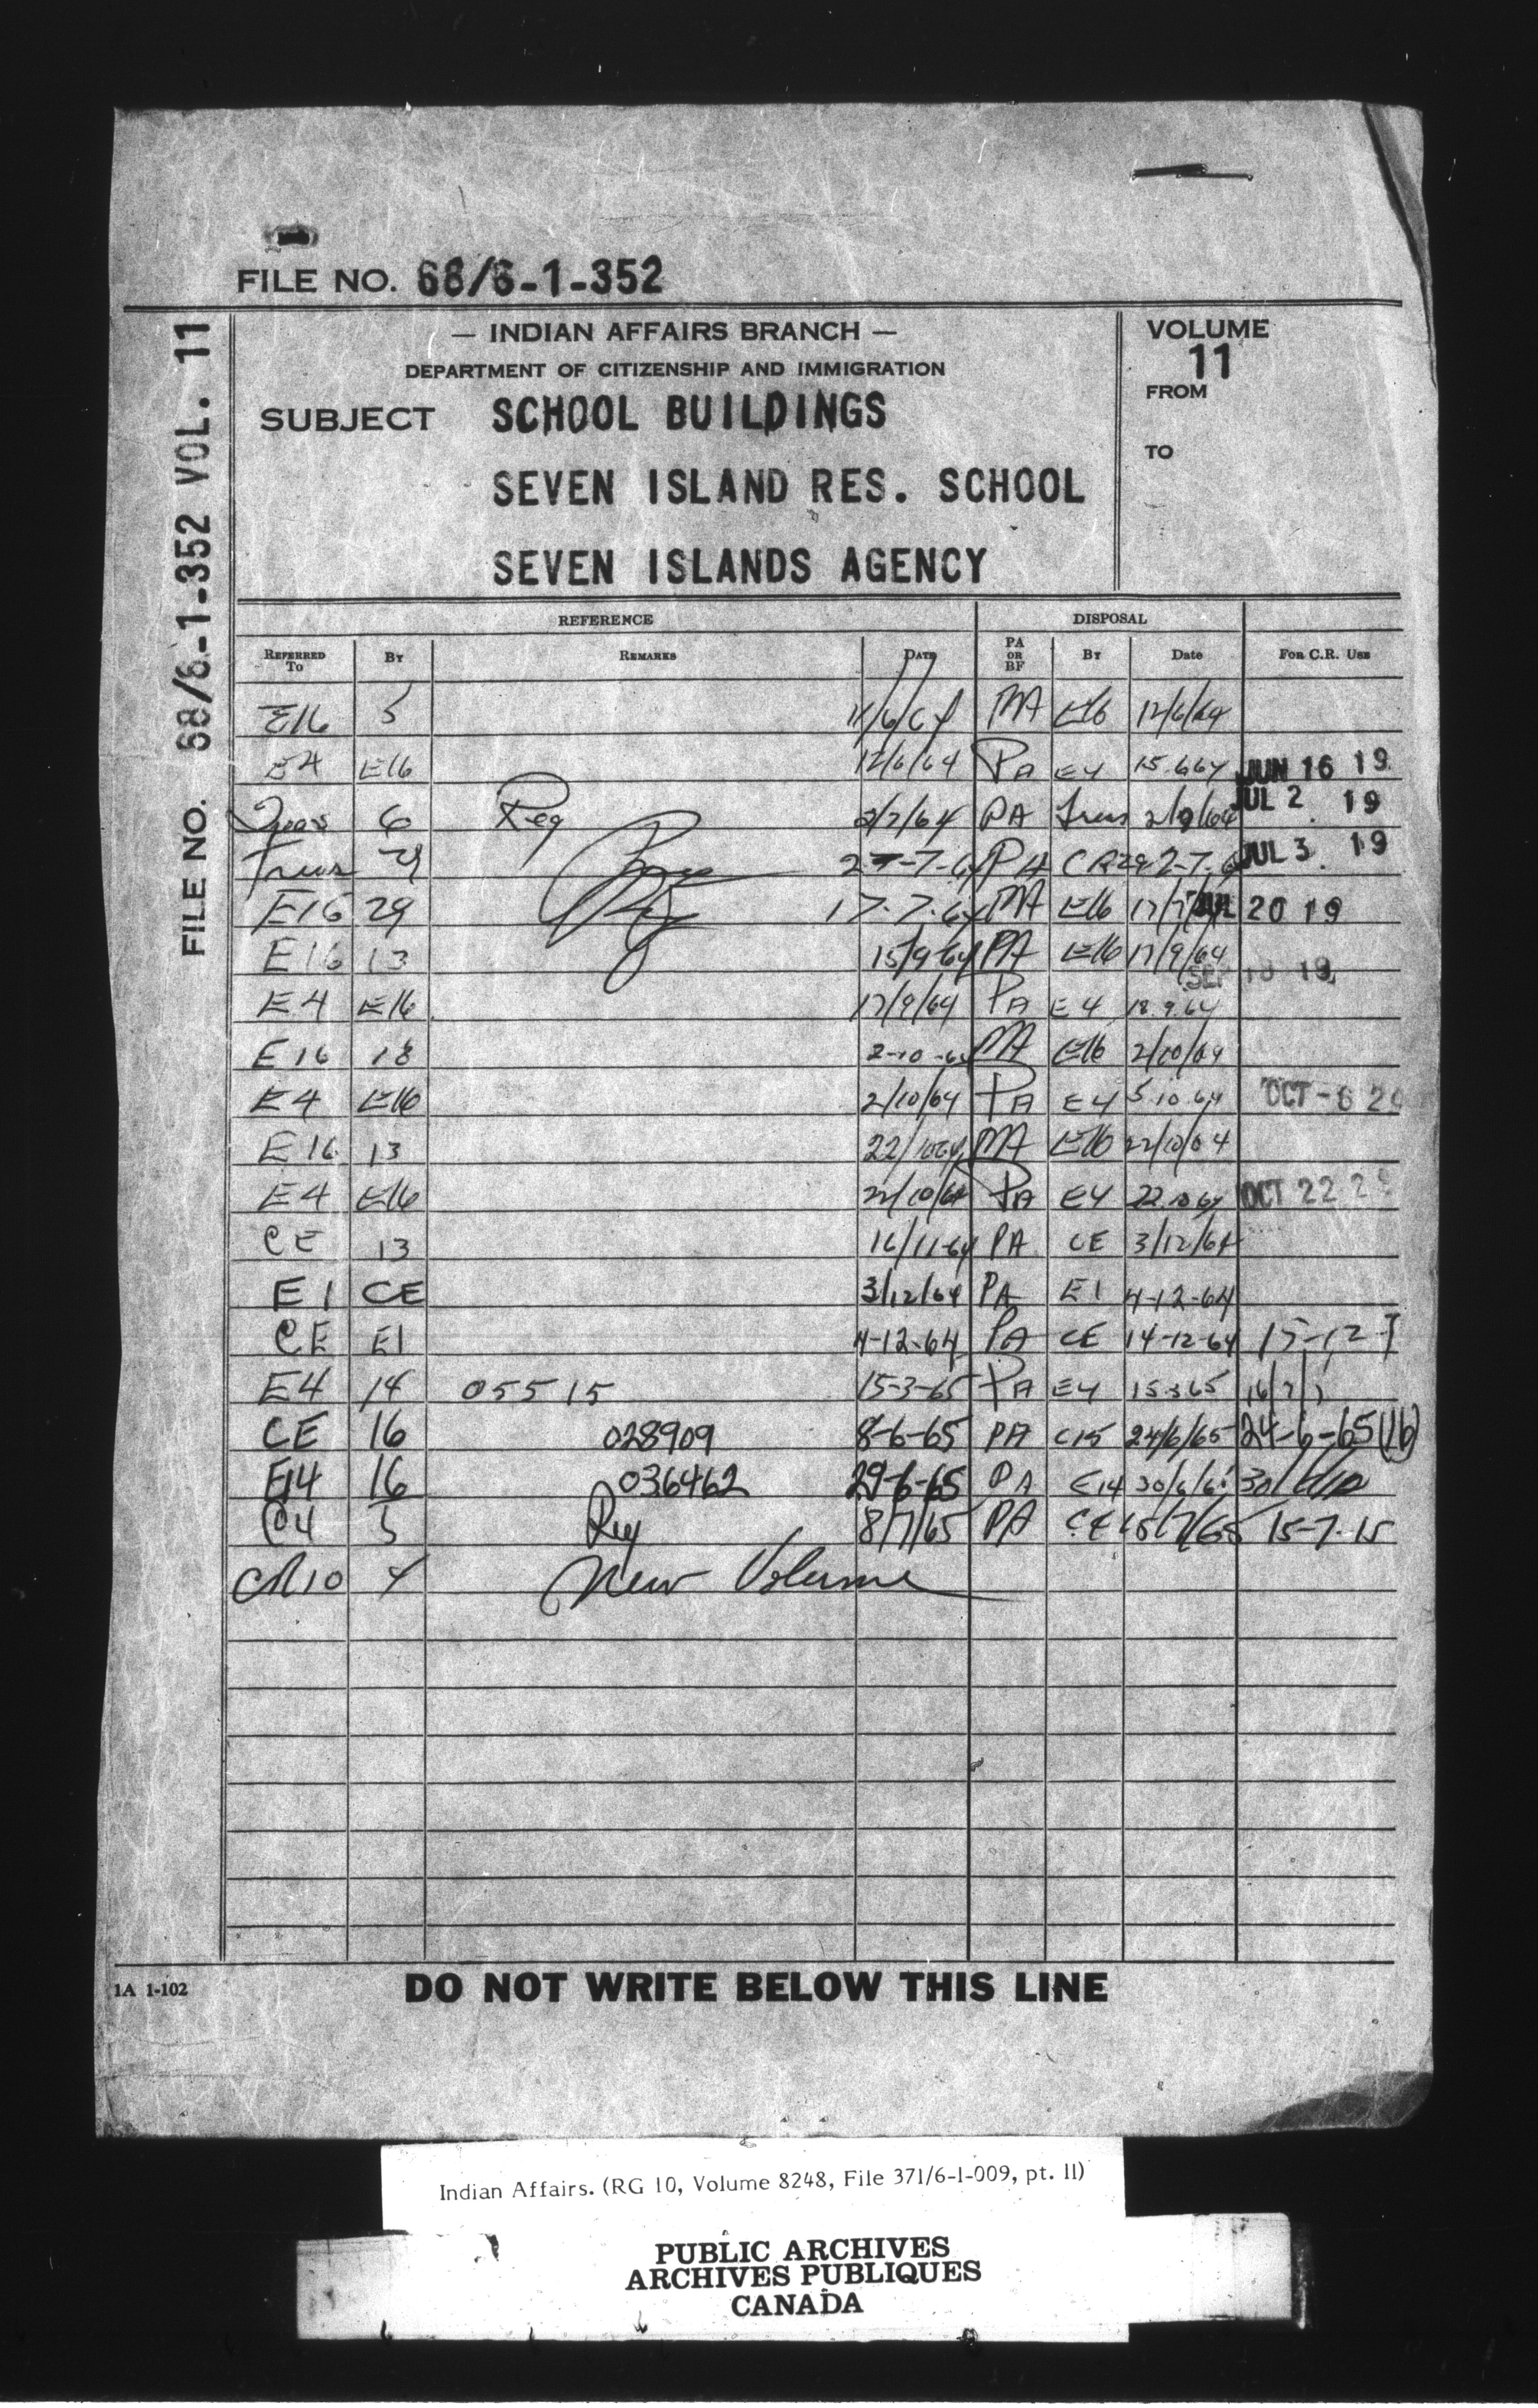 FILE NO. 68/6-1-352
FILE NO. 68/6-1-352 VOL. 11
— INDIAN AFFAIRS BRANCH —
DEPARTMENT OF CITIZENSHIP AND IMMIGRATION
SUBJECT SCHOOL BUILDINGS
SEVEN ISLAND RES. SCHOOL
SEVEN ISLANDS AGENCY
VOLUME
11
FROM
TO
REFERENCE DISPOSAL
REFERRED TO BY REMARKS DATE PA OR BF BY Date FOR C.R. USE
E16 5 11/6/64 E16 12/6/64
E4 E16 12/6/64 PA E4 15.6.64 JUN 16 19
6 Reg 2/7/64 PA JUL 2 19
PA JUL 3 19
E16 29 17.7.64 E16 JUL 20 19
E16 13 15/9-64 PA E16 17/9/64
E4 E16 17/9/64 PA E4 18.9.64 SEP 18 19
E16 18 2-10-64 E16 2/10/64
E4 E16 2/10/64 PA E4 5.10.64 OCT -6
E16 13 22/10/64 E16 22/10/64
E4 E16 22/10/64 PA E4 22.10.64 OCT 22
CE 13 16/11-64 PA CE 3/12/64
E1 CE 3/12/64 PA E1 4-12-64
CE E1 4-12-64 PA CE 14-12-64 15-12
E4 14 05515 15-3-65 PA E4 15.3.65
CE 16 028909 8-6-65 PA 24/6/65 24-6-65 (16)
E14 16 036462 29-6-65 PA E14 30/6/65
C4 5 Reg 8/7/65 PA CE 15/7/65 15-7-15
CR10 4 New Volume
1A 1-102
DO NOT WRITE BELOW THIS LINE
Indian Affairs. (RG 10, Volume 8248, File 371/6-1-009, pt. 11)
PUBLIC ARCHIVES
ARCHIVES PUBLIQUES
CANADA